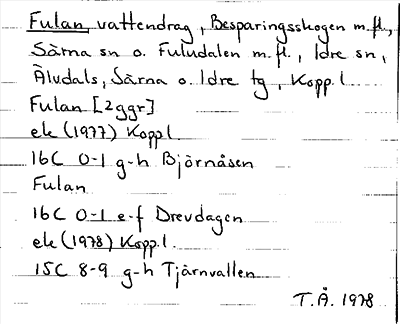 Fulan, vattendrag, Besparingsskogen m.fl.,
Särna sn o. Fuludalen m.fl., Idre sn,
Äludals, Särna o. Idre tg, Kopp.l.
Fulan [2ggr]
ek (1977) Kopp.l.
16C 0-1 g-h Björnåsen
Fulan
16C 0-1 e-f Drevdagen
ek (1978) Kopp.l.
15C 8-9 g-h Tjärnvallen
T.Å. 1978